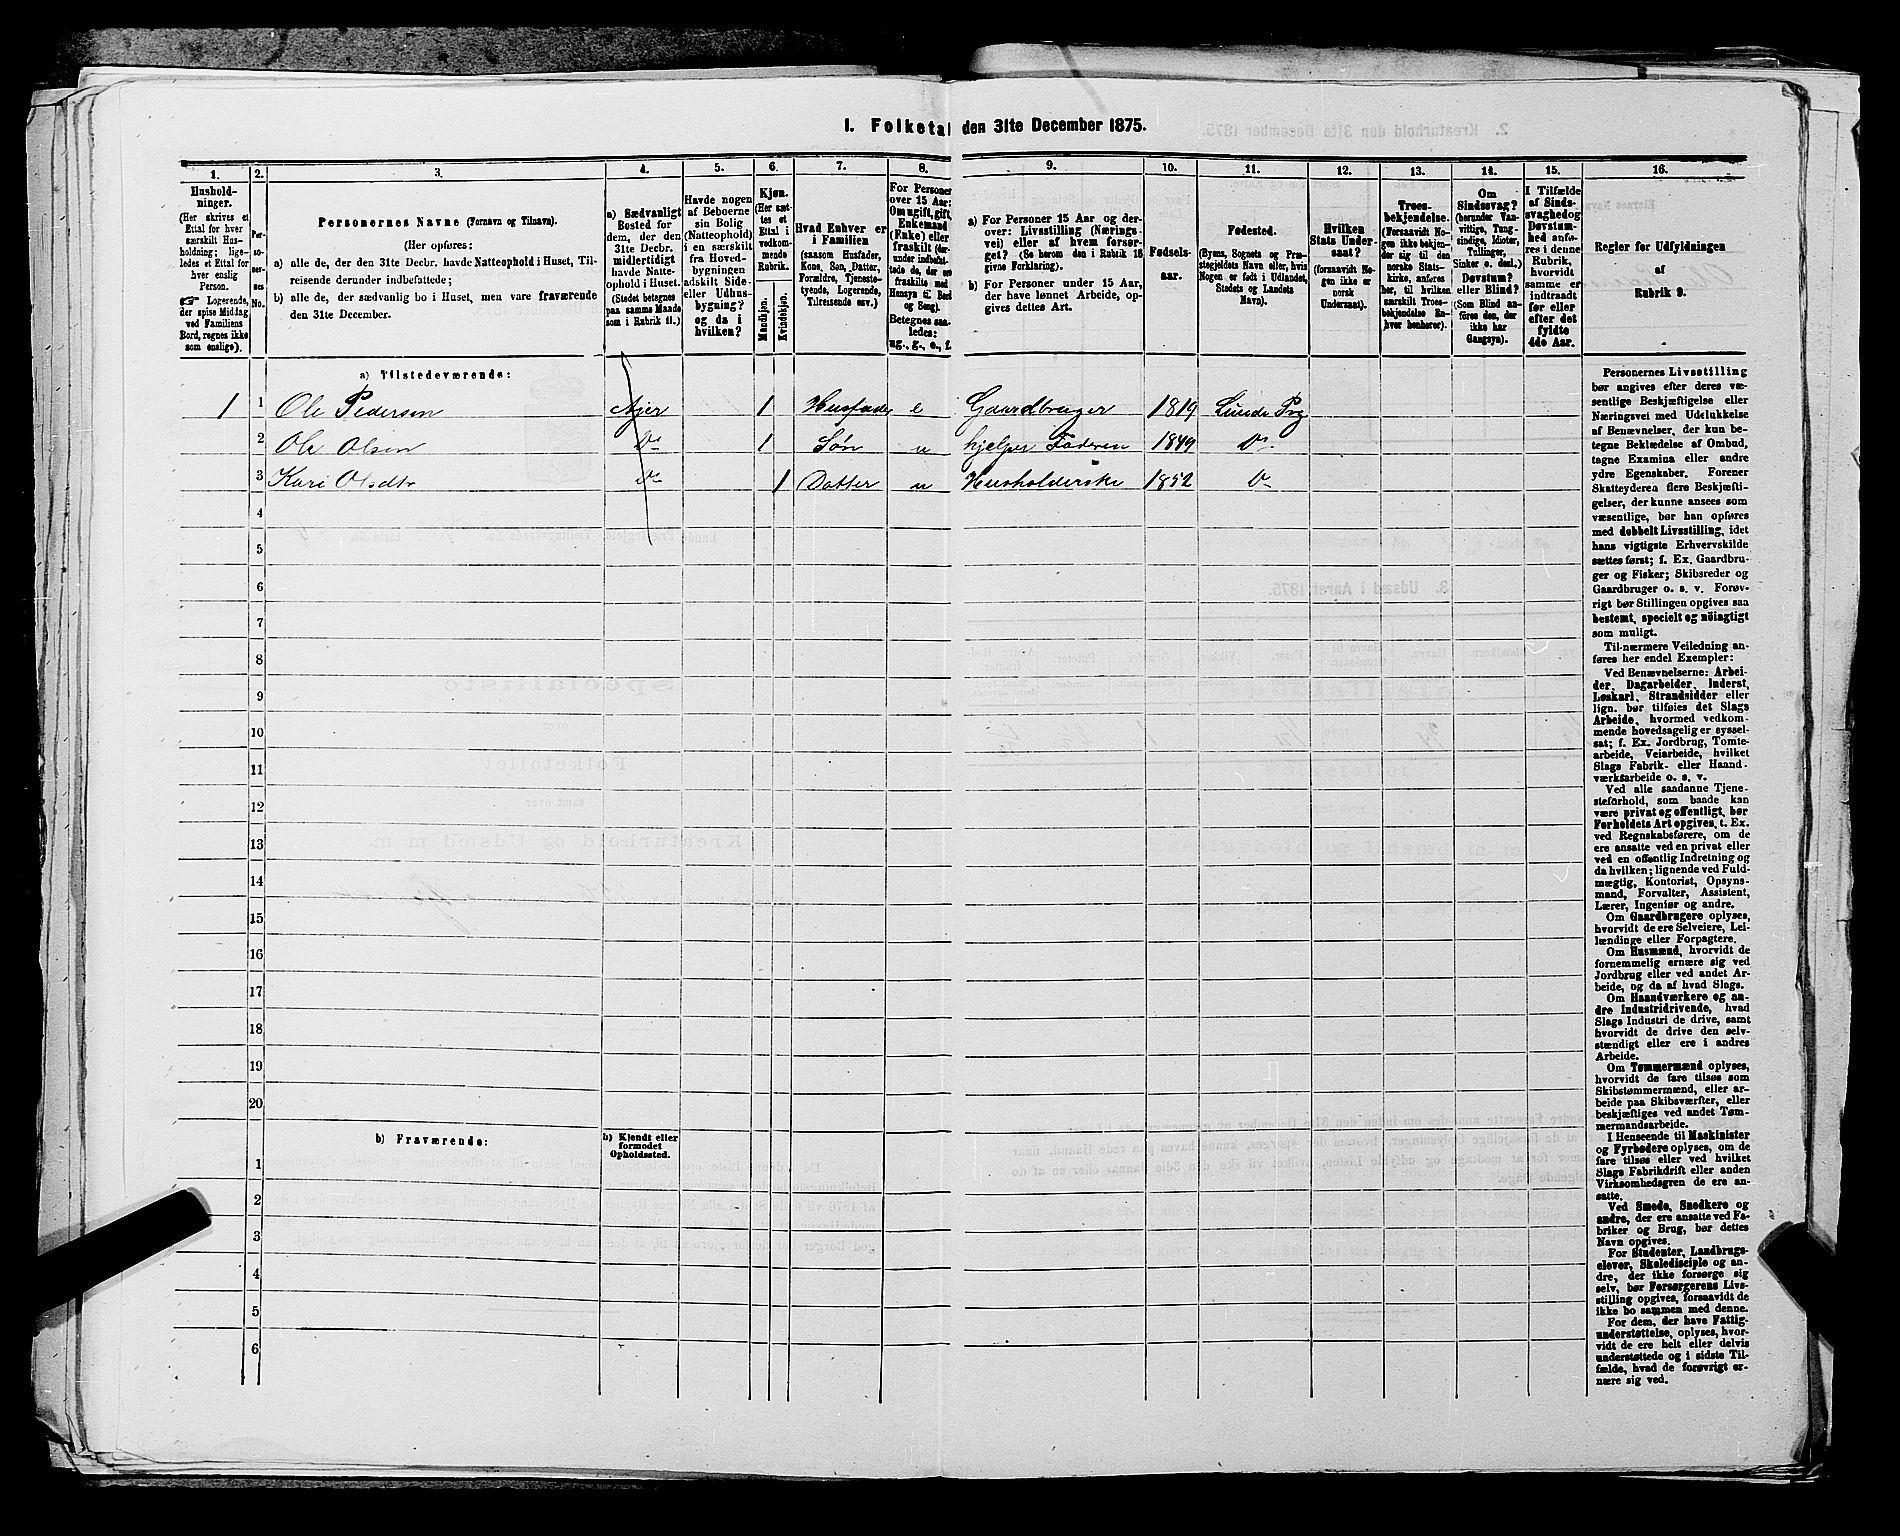 I. Folketal den 31te December 1875.
1.
Hushold-
ninger.
(Her skrives et
Ettal for hver
særskilt Hus-
holdning; lige-
ledes et Ettal for
hver enslig
Person.
☞ Logerende,
der spise Middag
ved Familiens
Bord, regnes ikke
som enslige).
2.
Per-
so-
ner-
nes
No.
3.
Personernes Navne (Fornavn og Tilnavn).
(Her opføres:
a) alle de, der den 31te Decbr. havde Natteophold i Huset, Til-
reisende derunder indbefattede;
b) alle de, der sædvanlig bo i Huset, men vare fraværende
den 31te December.
4.
a) Sædvanligt
Bosted for
dem, der den
31te Decbr.
midlertidigt
havde Natte-
ophold i Huset.
(Stedet betegnes
paa samme Maade
som i Rubrik 11.)
5.
Havde nogen
af Beboerne
sin Bolig
(Natteophold)
i en særskilt
fra Hoved-
bygningen
adskilt Side-
eller Udhus-
bygning?
og da i
hvilken?
6.
Kjøn.
(Her sæt-
tes et
Ettal i
vedkom-
mende
Rubrik.
Mandkjøn.
Kvindekjøn.
7.
Hvad Enhver er
i Familien
(saasom Husfader,
Kone, Søn, Datter,
Forældre, Tjeneste-
tyende, Logerende,
Tilreisende osv.)
8.
For Personer
over 15 Aar:
Om ugift, gift,
Enkemand
(Enke) eller
fraskilt (der-
under indbefat-
tede de, der ere
fraskilte med
Hensyn til Bord
og Seng).
Betegnes saa-
ledes:
ug., g., e., f.
9.
a) For Personer 15 Aar og der-
over: Livsstilling (Nærings-
vei) eller af hvem forsør-
get? (Se herom den i Rubrik 16
givne Forklaring).
b) For Personer under 15 Aar,
der have lønnet Arbeide, op-
gives dettes Art.
10.
Fødsels-
aar.
11.
Fødested.
(Byens, Sognets og Præ-
stegjeldets Navn eller, hvis
Nogen er født i Udlandet,
Stedets og Landets
Navn).
12.
Hvilken
Stats Under-
saat?
(forsaavidt No-
gen ikke er
norsk
Undersaat).
13.
Troes-
bekjendelse.
(Forsaavidt No-
gen ikke bekjen-
der sig til den
norske Stats-
kirke, anføres
her, til hvilken
særskilt Troes-
bekjendelse En-
hver henhører).
14.
Om
Sindssvag?
(herunder Van-
vittige, Tung-
sindige, Idioter,
Tullinger,
Sinker o. desl.)
Døvstum?
eller Blind?
(Som Blind an-
føres den, der
ikke har
Gangsyn).
15.
I Tilfælde
af Sinds-
svaghed og
Døvstum-
hed anfø-
res i denne
Rubrik,
hvorvidt
samme er
indtraadt
før eller
efter det
fyldte
4de Aar.
16.
Regler for Udfyldningen
af
Rubrik 9.
a) Tilstedeværende:
1 1 Ole Pedersen Ajer 1 Husfader e Gaardbruger 1819 Lunde Prg
2 Ole Olsen Do 1 Søn u hjelper Faderen 1849 Do
3 Kari Olsdtr Do 1 Datter u Husholderske 1852 Do
4
5
6
7
8
9
10
11
12
13
14
15
16
17
18
19
20
b) Fraværende:
b) Kjendt eller
formodet
Opholdssted.
1
2
3
4
5
6
Personernes Livsstilling
bør angives efter deres væ-
sentlige Beskjæftigelse eller
Næringsvei med Udelukkelse
af Benævnelser, der kun be-
tegne Beklædelse af Ombud,
tagne Examina eller andre
ydre Egenskaber. Forener
Skatteyderen flere Beskjæfti-
gelser, der kunne ansees som
væsentlige, bør han opføres
med dobbelt Livsstilling, idet
hans vigtigste Erhvervskilde
sættes først; f. Ex. Gaardbru-
ger og Fisker; Skibsreder og
Gaardbruger o. s. v. Forøv-
rigt bør Stillingen opgives saa
bestemt, specielt og nøiagtigt
som muligt.
Til nærmere Veiledning an-
føres her endel Exempler:
Ved Benævnelserne: Arbei-
der, Dagarbeider, Inderst,
Løskarl, Strandsidder eller
lign. bør tilføies det Slags
Arbeide, hvormed vedkom-
mende hovedsagelig er syssel-
sat; f. Ex. Jordbrug, Tomte-
arbeide, Veiarbeide, hvilket
Slags Fabrik- eller Haand-
værksarbeide o. s. v.
Ved alle saadanne Tjene-
steforhold, som baade kan
være privat og offentligt, bør
Forholdets Art opgives, t. Ex.
ved Regnskabsførere, om de
ere ansatte ved en privat eller
ved en offentlig Indretning og
da hvilken; lignende ved Fuld-
mægtig, Kontorist, Opsyns-
mand, Forvalter, Assistent,
Lærer, Ingeniør og andre.
Om Gaardbrugere oplyses,
hvorvidt de ere Selveiere, Lei-
lændinge eller Forpagtere.
Om Husmænd, hvorvidt de
fornemmelig ernære sig ved
Jordbrug eller ved andet Ar-
beide, og da af hvad Slags.
Om Haandværkere og an-
dre Industridrivende, hvad
Slags Industri de drive, samt
hvorvidt de drive den selv-
stændigt eller ere i andres
Arbeide.
Om Tømmermænd oplyses,
hvorvidt de fare tilsøs som
Skibstømmermænd, eller ar-
beide paa Skibsværfter, eller
beskjæftiges ved andet Tøm-
mermandsarbeide.
I Henseende til Maskinister
og Fyrbødere oplyses, om de
fare tilsøs eller ved hvilket
Slags Fabrikdrift eller anden
Virksomhedsgren de ere an-
satte.
Ved Smede, Snedkere og
andre, der ere ansatte ved Fa-
briker og Brug, bør dettes
Navn opgives.
For Studenter, Landbrugs-
elever, Skoledisciple og an-
dre, der ikke forsørge sig
selv, bør Forsørgerens Livs-
stilling opgives, forsaavidt de
ikke bo sammen med denne.
For dem, der have Fattig-
understøttelse, oplyses, hvor-
vidt de ere helt eller delvis
understøttede og i sidste Til-
fælde, hvad de forøvrigt er-
nære sig ved.